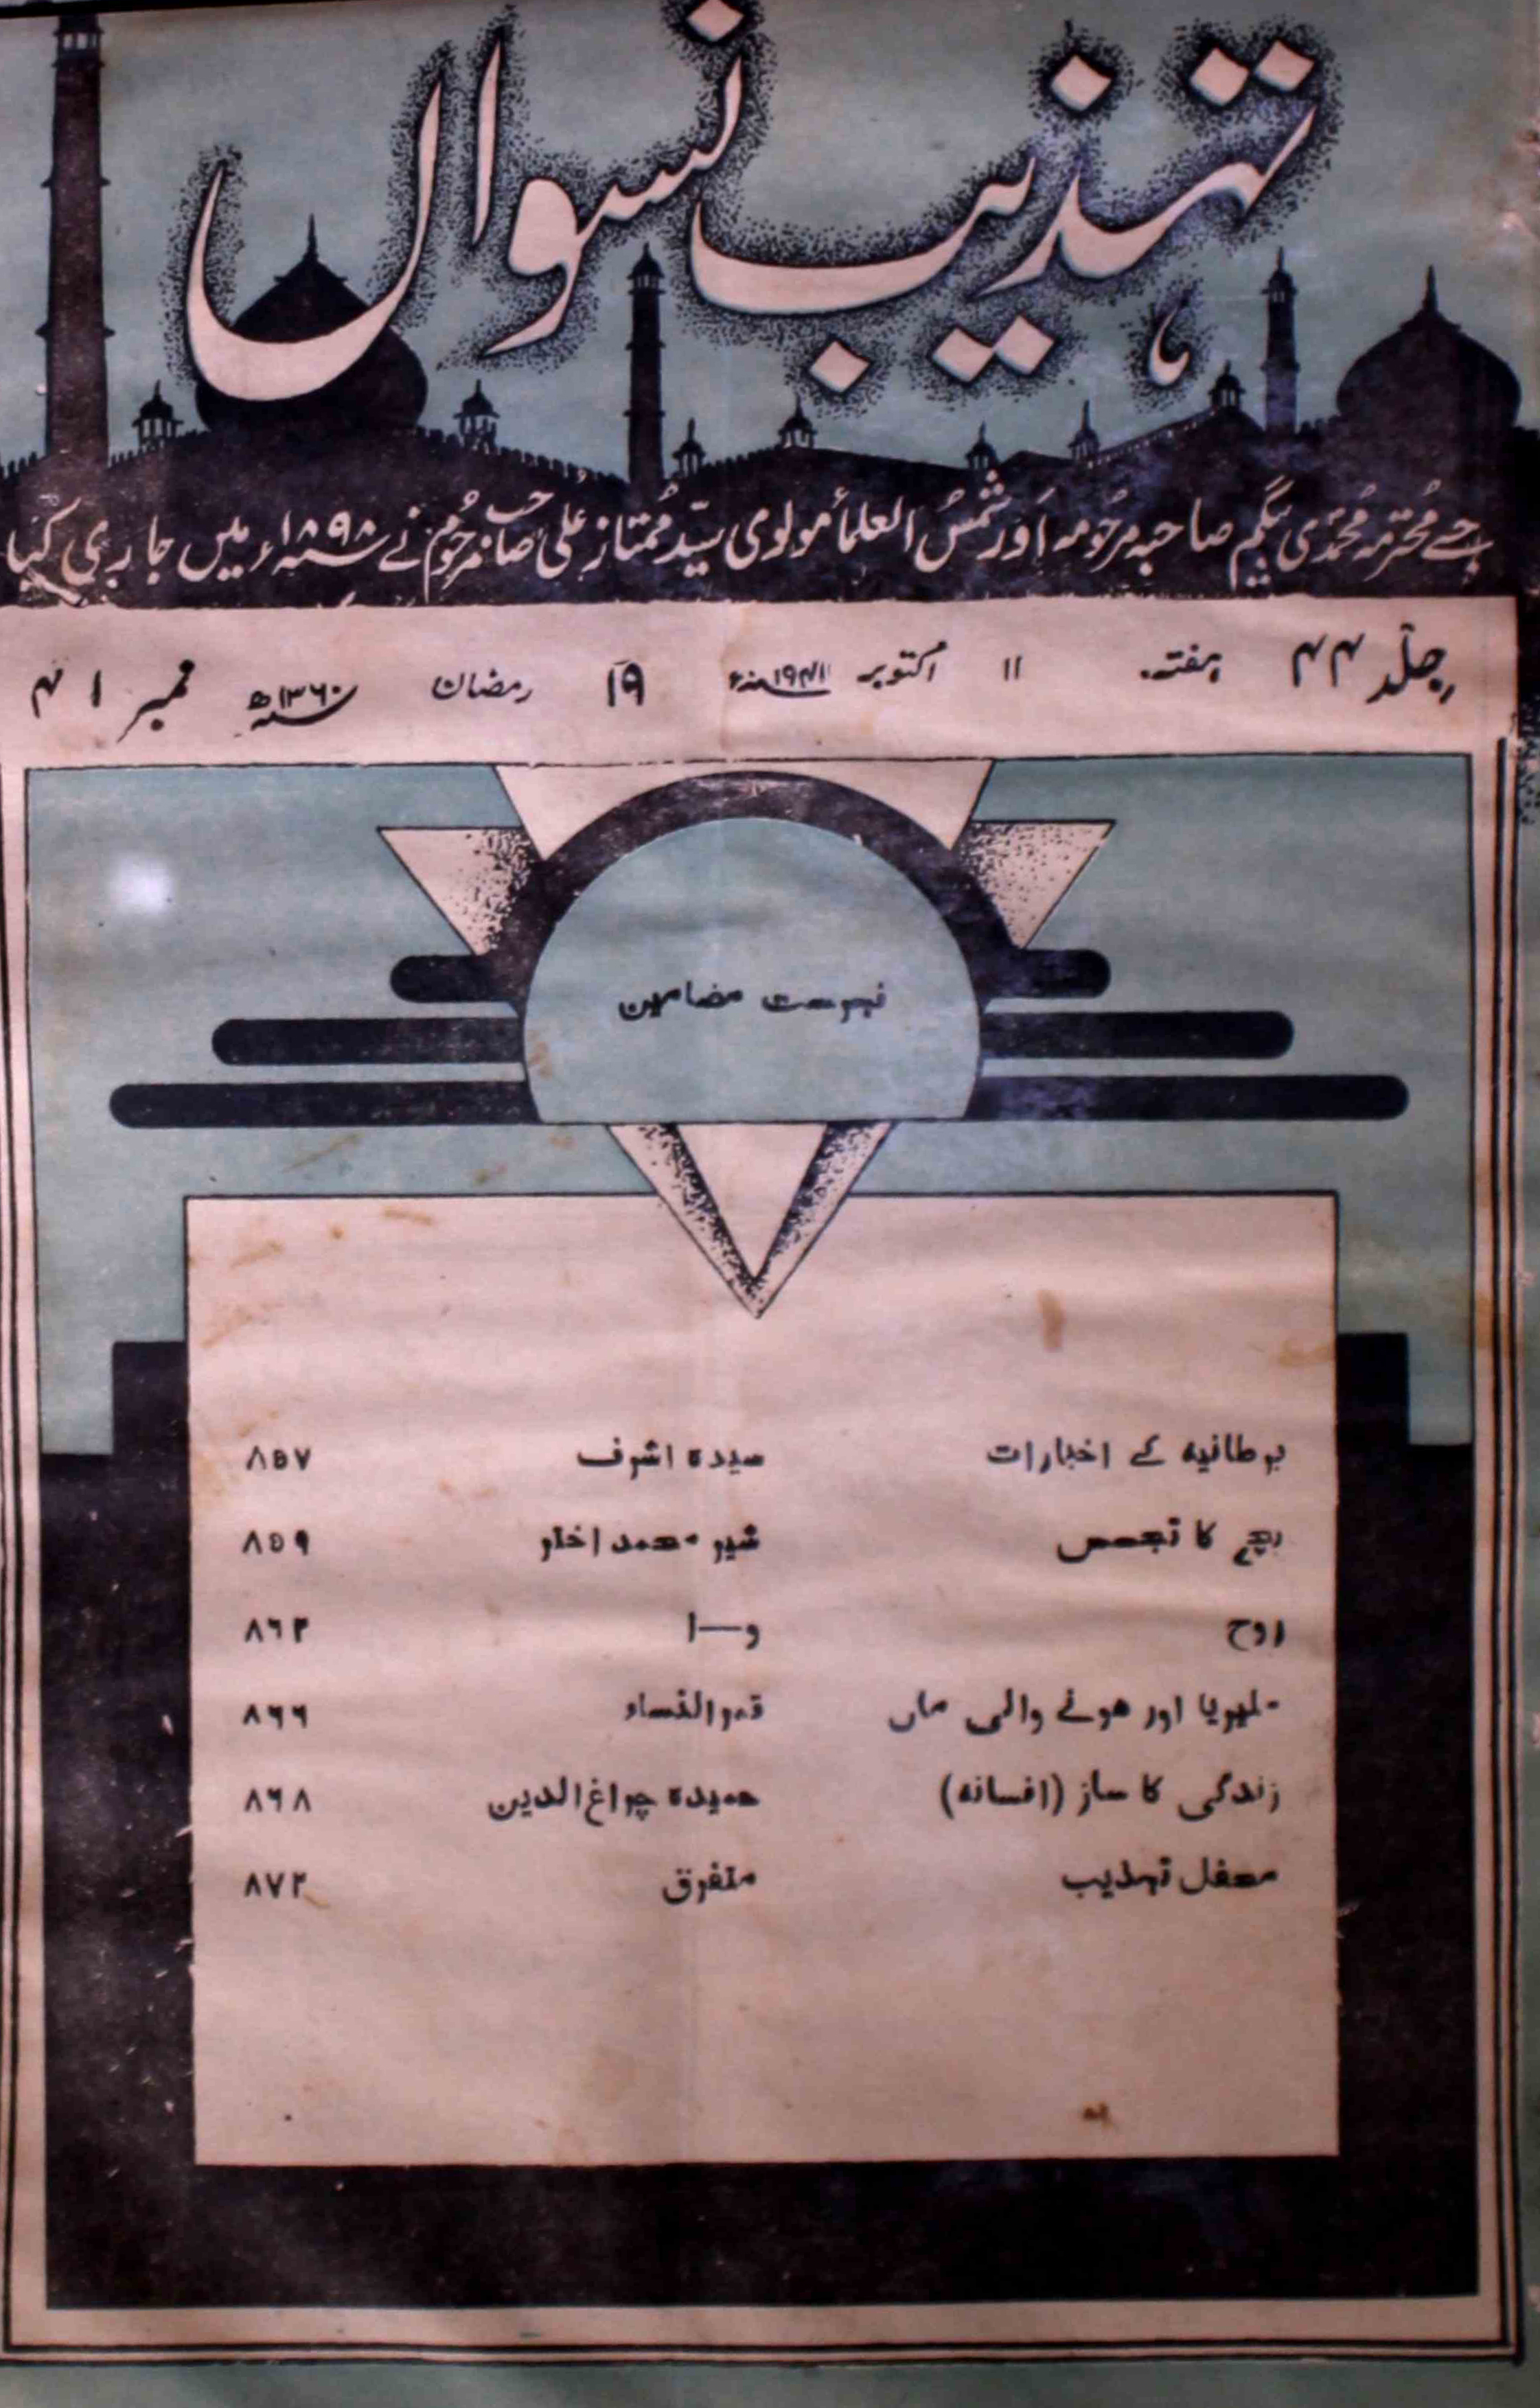 تہذیب نسواں
جسے محترمہ محمدی بیگم صاحبہ مرحومہ اور شمس العلماء مولوی سید ممتاز علی صاحب مرحوم نے ۱۸۹۸ء میں جاری کیا
جلد ۴۴ ہفتہ ۱۱ اکتوبر ۱۹۴۱ء ۱۹ رمضان ۱۳۶۰ھ نمبر ۴۱
فہرست مضامین
برطانیہ کے اخبارات سیدہ اشرف ۸۵۷
بچے کا تجسس شیر محمد اختر ۸۵۹
روح و—ا ۸۶۲
ملیریا اور ہونے والی ماں قمرالنساء ۸۶۶
زندگی کا ساز (افسانہ) حمیدہ چراغ الدین ۸۶۸
محفل تہذیب متفرق ۸۷۲